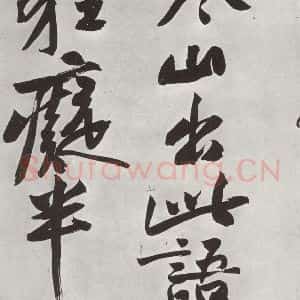 山出此語
狂癡半
Shufawang.CN